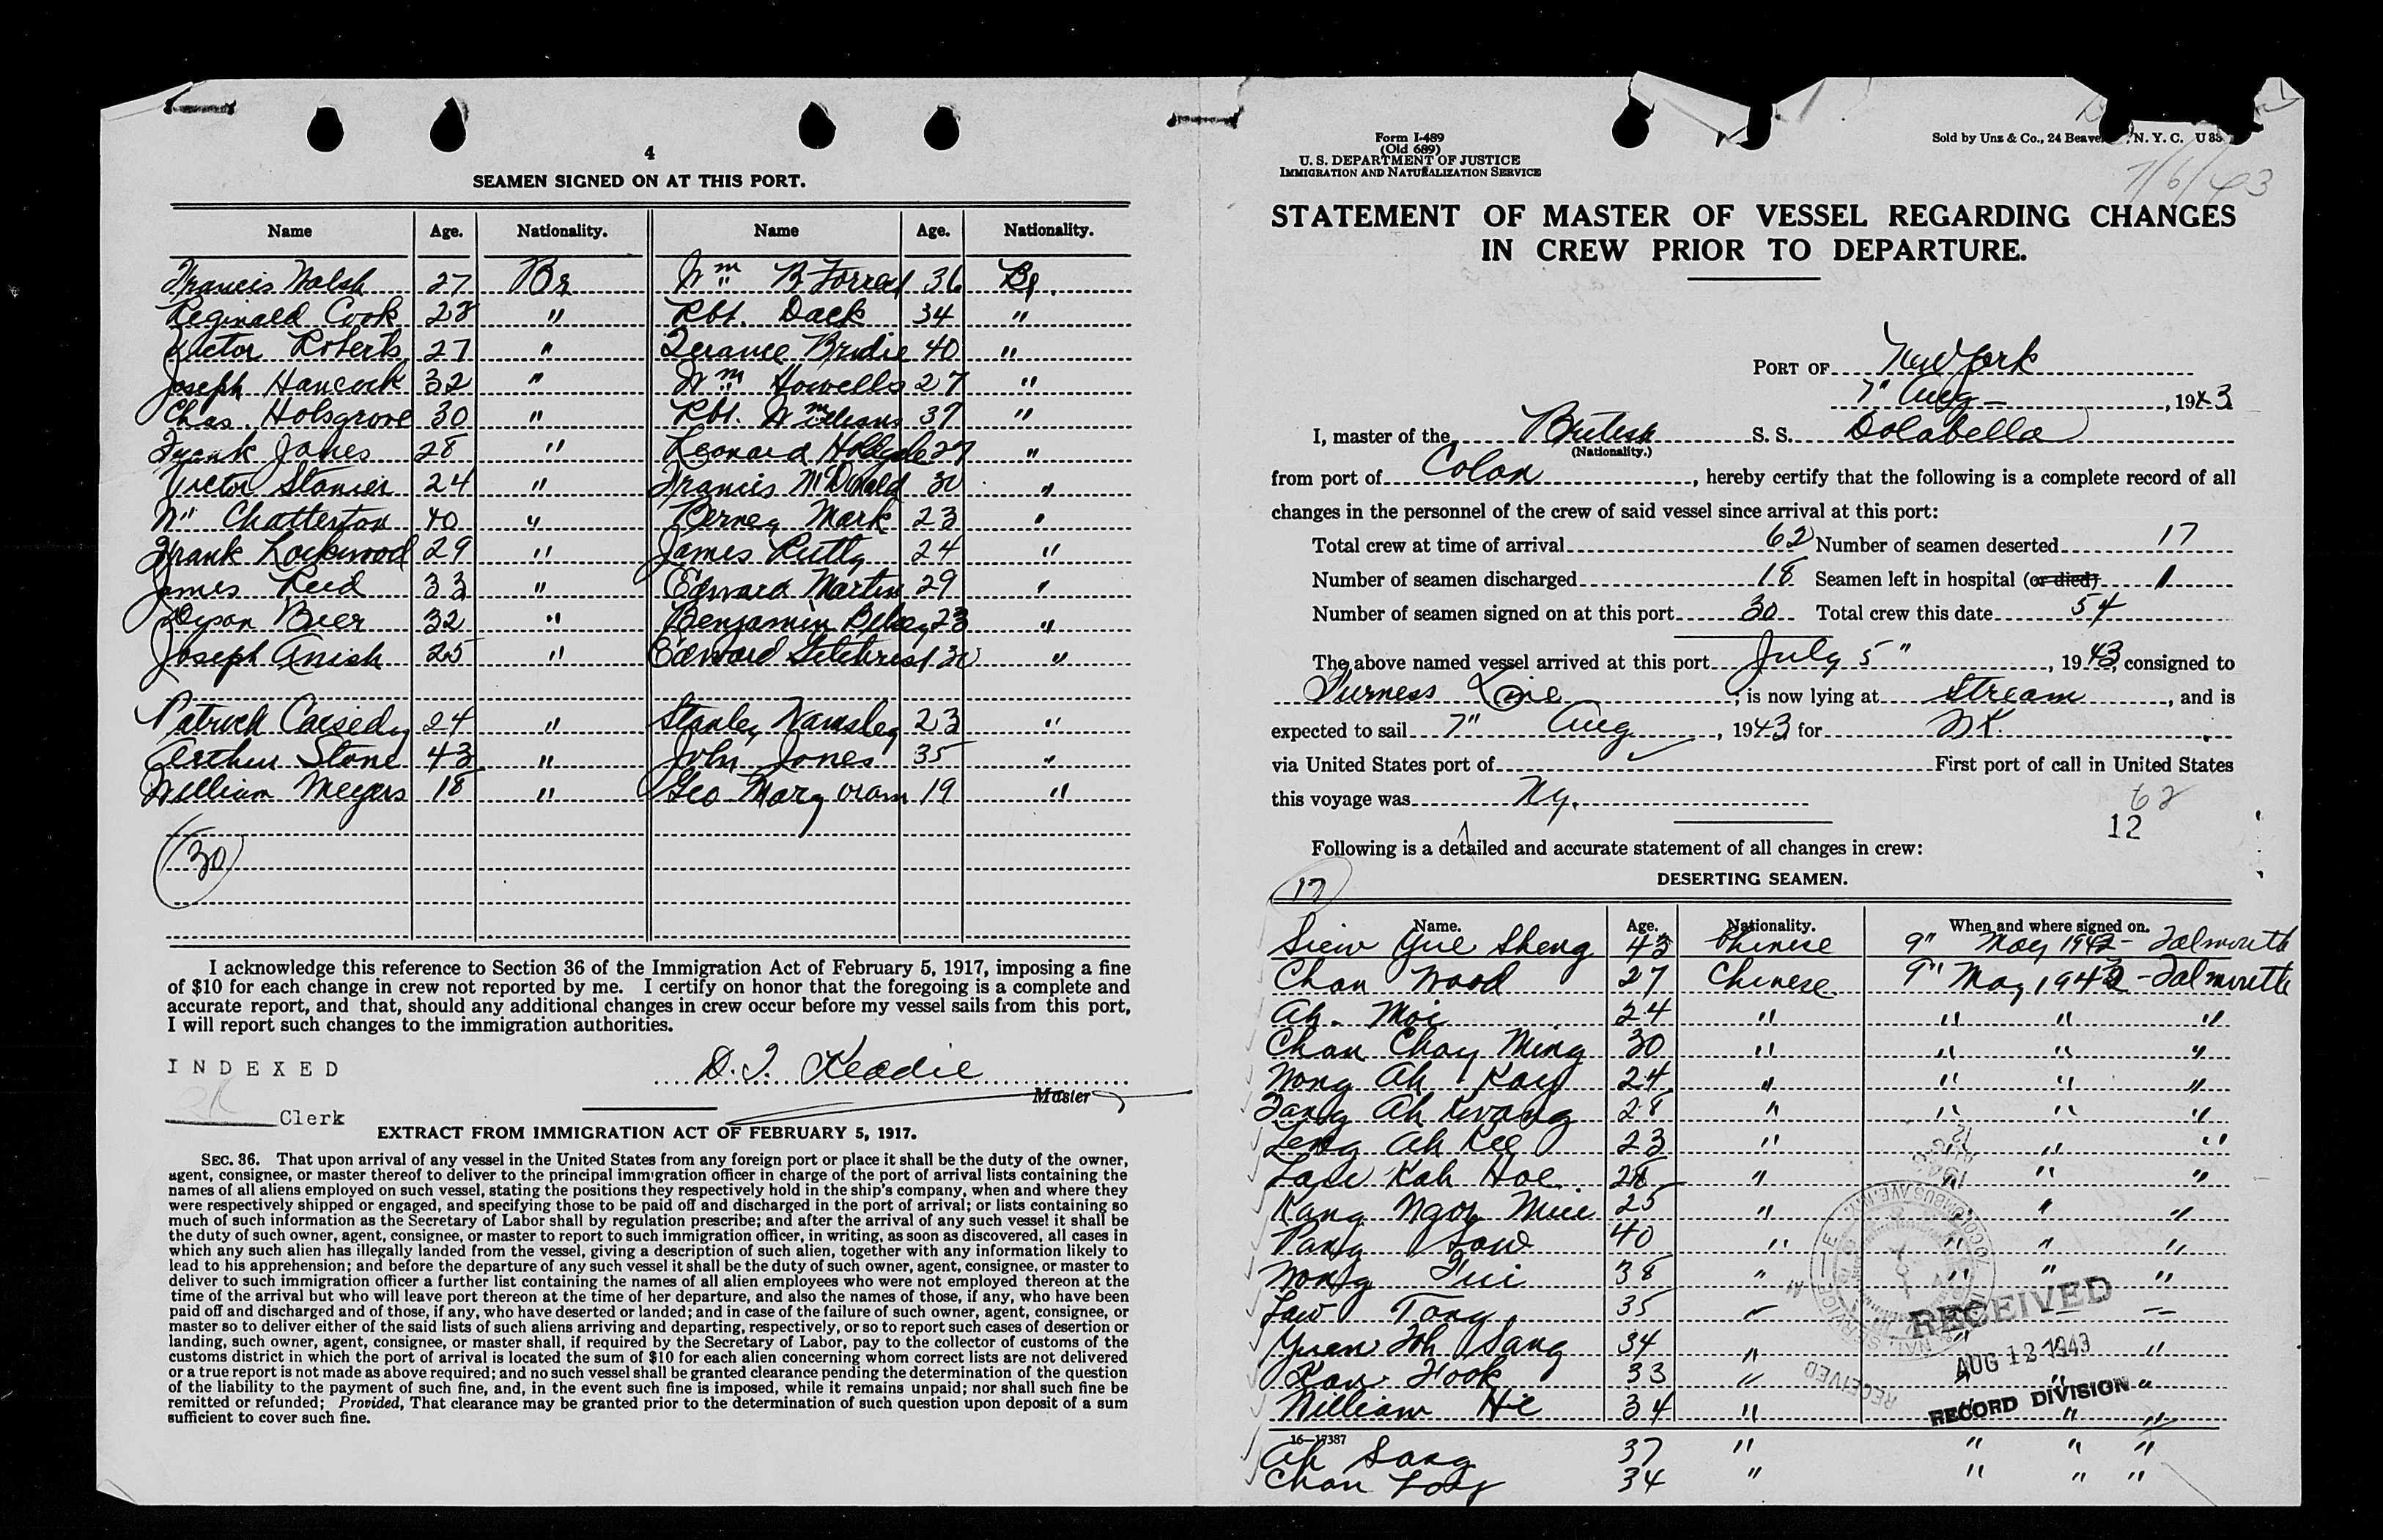 4
SEAMEN SIGNED ON AT THIS PORT.
Name Age. Nationality. Name Age. Nationality.
Francis Walsh 27 Br Wm B Forrest 36 Br.
Reginald Cook 28 " Rbt. Dack 34 "
Victor Roberts 27 " Terance Bridie 40 "
Joseph Hancock 32 " Wm Howells 27 "
Chas. Holsgrove 30 " Rbt. Williams 37 "
Frank Jones 28 " Leonard 27 "
Victor Stanier 24 " Francis McDonald 30 "
Wm Chatterton 40 " Berney Mark 23 "
Frank Lockwood 29 " James Rutly 24 "
James Reid 33 " Edward Martin 29 "
Dyson Bier 32 " Benjamin 23 "
Joseph Anish 25 " Edward Gilchrist 30 "
Patrick Cassedy 24 " Stanley Wamsley 23 "
Arthur Stone 43 " John Jones 35 "
William Meyers 18 " Geo 19 "
30
I acknowledge this reference to Section 36 of the Immigration Act of February 5, 1917, imposing a fine
of $10 for each change in crew not reported by me. I certify on honor that the foregoing is a complete and
accurate report, and that, should any additional changes in crew occur before my vessel sails from this port,
I will report such changes to the immigration authorities.
INDEXED
D. T. Keadie
Master
Clerk
EXTRACT FROM IMMIGRATION ACT OF FEBRUARY 5, 1917.
SEC. 36. That upon arrival of any vessel in the United States from any foreign port or place it shall be the duty of the owner,
agent, consignee, or master thereof to deliver to the principal immigration officer in charge of the port of arrival lists containing the
names of all aliens employed on such vessel, stating the positions they respectively hold in the ship's company, when and where they
were respectively shipped or engaged, and specifying those to be paid off and discharged in the port of arrival; or lists containing so
much of such information as the Secretary of Labor shall by regulation prescribe; and after the arrival of any such vessel it shall be
the duty of such owner, agent, consignee, or master to report to such immigration officer, in writing, as soon as discovered, all cases in
which any such alien has illegally landed from the vessel, giving a description of such alien, together with any information likely to
lead to his apprehension; and before the departure of any such vessel it shall be the duty of such owner, agent, consignee, or master to
deliver to such immigration officer a further list containing the names of all alien employees who were not employed thereon at the
time of the arrival but who will leave port thereon at the time of her departure, and also the names of those, if any, who have been
paid off and discharged and of those, if any, who have deserted or landed; and in case of the failure of such owner, agent, consignee, or
master so to deliver either of the said lists of such aliens arriving and departing, respectively, or so to report such cases of desertion or
landing, such owner, agent, consignee, or master shall, if required by the Secretary of Labor, pay to the collector of customs of the
customs district in which the port of arrival is located the sum of $10 for each alien concerning whom correct lists are not delivered
or a true report is not made as above required; and no such vessel shall be granted clearance pending the determination of the question
of the liability to the payment of such fine, and, in the event such fine is imposed, while it remains unpaid; nor shall such fine be
remitted or refunded; Provided, That clearance may be granted prior to the determination of such question upon deposit of a sum
sufficient to cover such fine.
Form I-489
(Old 689)
U. S. DEPARTMENT OF JUSTICE
IMMIGRATION AND NATURALIZATION SERVICE
Sold by Unz & Co., 24 Beaver , N. Y. C. U 83
7/6/43
STATEMENT OF MASTER OF VESSEL REGARDING CHANGES
IN CREW PRIOR TO DEPARTURE.
PORT OF New York
7" Aug , 1943
I, master of the British S. S. Dolabella
(Nationality.)
from port of Colon , hereby certify that the following is a complete record of all
changes in the personnel of the crew of said vessel since arrival at this port:
Total crew at time of arrival 62 Number of seamen deserted 17
Number of seamen discharged 18 Seamen left in hospital (or died) 1
Number of seamen signed on at this port 30 Total crew this date 54
The above named vessel arrived at this port July 5" , 1943, consigned to
Furness Line ; is now lying at Stream , and is
expected to sail 7" Aug , 1943 for UK.
via United States port of First port of call in United States
this voyage was Ny.
62
12
Following is a detailed and accurate statement of all changes in crew:
17
DESERTING SEAMEN.
Name. Age. Nationality. When and where signed on.
Siew Yue Sheng 43 Chinese 9" May 1942 - Falmouth
Chan Wood 27 Chinese 9" May 1942 - Falmouth
Ah. Moi 24 " " " "
Chan Chay Ming 30 " " " "
Wong Ah Kay 24 " " " "
Fang Ah Kwang 28 " " " "
Leng Ah Kee 23 " " "
Law Kah Hoe 28 " " "
Kang Ngoh Muie 25 " " "
Pang Low 40 " " " "
Wong Fui 38 " " " "
Law Tong 35 "
Yuen Joh Sang 34 " " "
Kan Fook 33 " " " "
William He 34 " " " "
16—17387
Ah Sang 37 " " " "
Chan 34 " " " "
RECEIVED
AUG 12 1943
RECORD DIVISION
RECEIVED